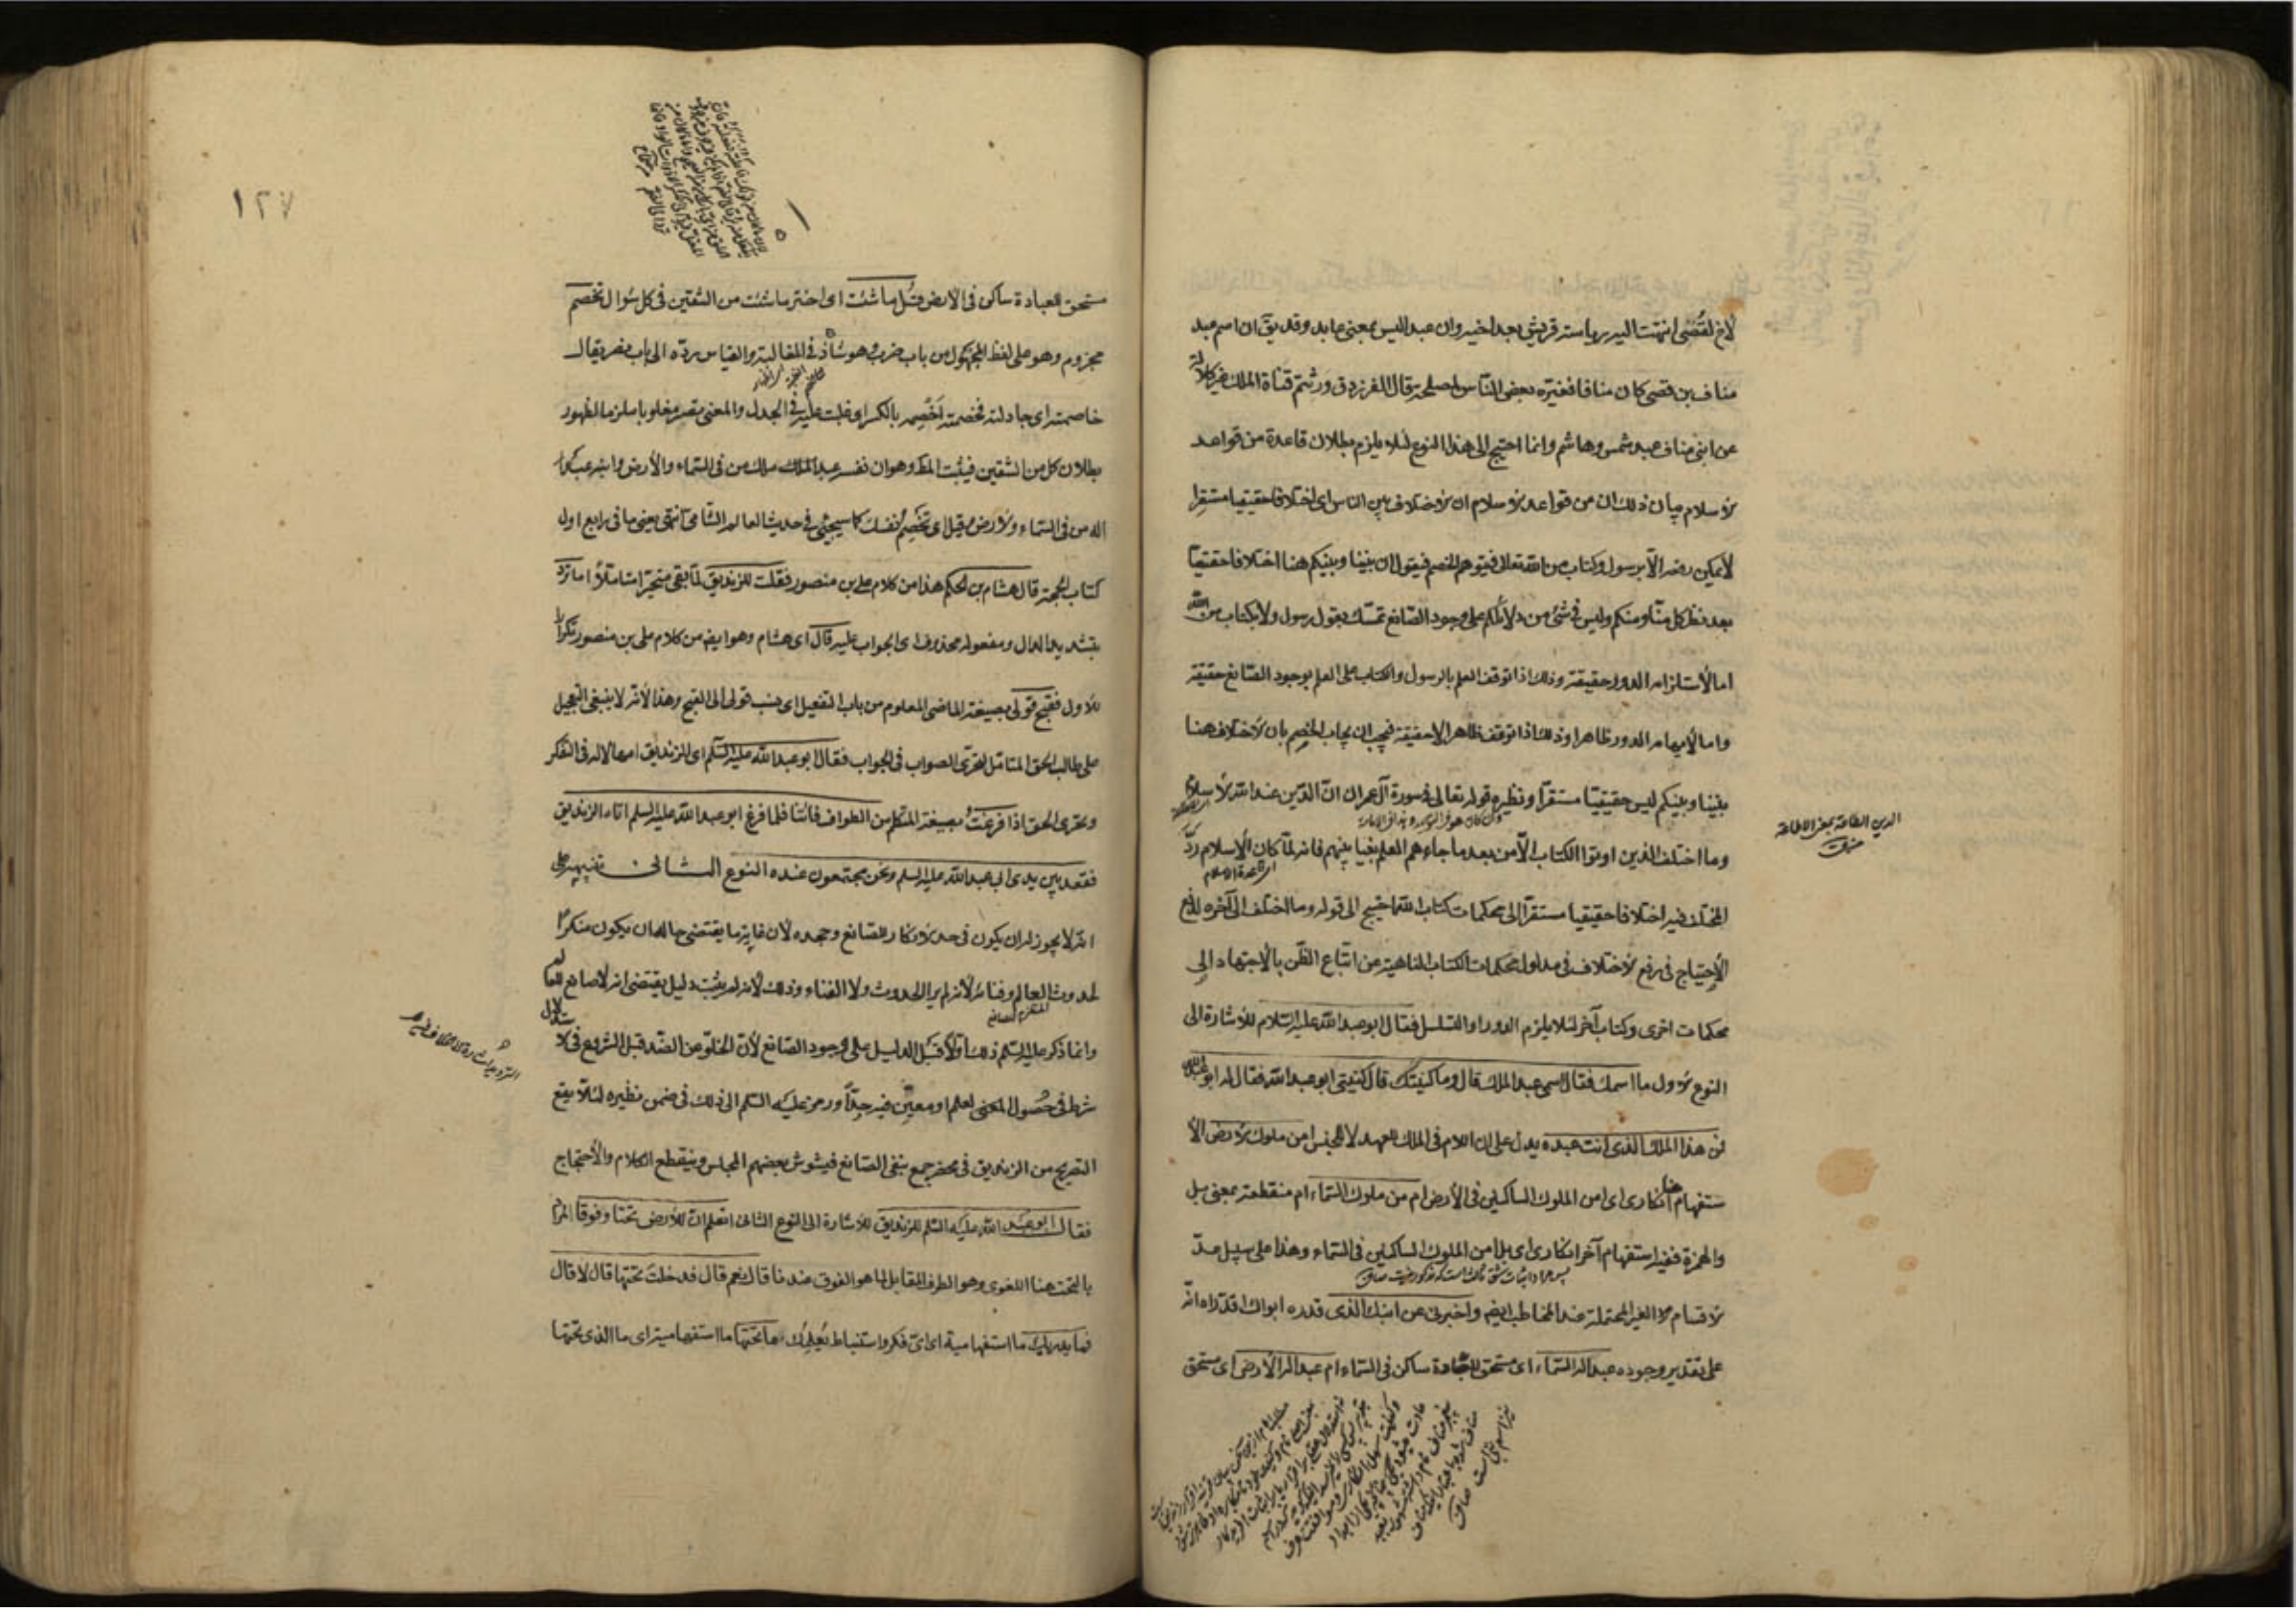 لاخ لقُصَى انتهت اليه رياسة قريش بعد اخيه وان عبد اليس بمعنى عابد وقد يقّ ان اسم عبد
مناف بن قصى كان منافا فغيّره بعض النّاس لمصلحة قال الفرزدق ورثتم قناة الملك غير كلالة
عن ابنى مناف عبد شمس وهاشم وانما احتيج الى هذا النوع لئلا يلزم بطلان قاعدة من قواعد
الاسلام بيان ذلك ان من قواعد الاسلام ان الاختلاف بين الناس اى اختلافا حقيقيا مستقرا
لا يمكن رفعه الّا برسول وكتاب من الله تعالى فيتوهم الخصم فيقول ان بيننا وبينكم هنا اختلافا حقيقيّا
بعد نظر كل منّا ومنكم وليس فى شئ من دلائلكم على وجود الصّانع تمسّك بقول رسول ولا بكتاب من الله
اما لاستلزامه الدور حقيقة وذلك اذا توقف العلم بالرسول والكتاب على العلم بوجود الصّانع حقيقة
واما لايهامه الدور ظاهرا وذلك اذا توقف ظاهرا لا حقيقة فيجب ان يجاب الخصم بان الاختلاف هنا
بيننا وبينكم ليس حقيقيّا مستقرّا ونظيره قوله تعالى فى سورة آل عمران انّ الدّين عند الله الاسلام
وما اختلف الذين اوتوا الكتاب الّا من بعد ما جاءهم العلم بغيا بينهم فانه لمّا كان الاسلام ردّ
اى قاعدة الاسلام
المختلف فيه اختلافا حقيقيا مستقرّا الى محكمات كتاب الله احتيج الى قوله وما اختلف الى آخره لدفع
الدين الطاعة بمعنى الاطاعة
منه
الاحتياج فى رفع الاختلاف فى مدلول محكمات الكتاب الناهية عن اتباع الظّن بالاجتهاد الى
محكمات اخرى وكتاب آخر لئلا يلزم الدور او التسلسل فقال ابو عبد الله عليه السّلام للاشارة الى
النوع الاول ما اسمك فقال اسمى عبد الملك قال وما كنيتك قال كنيتى ابو عبد الله فقال له ابو عبد الله
فمن هذا الملك الذى انت عبده يدل على ان اللام فى الملك للعهد لا للجنس امن ملوك الارض الا
ستفهام هنا انكارى اى امن الملوك الساكنين فى الأرض ام من ملوك السّماء ام منقطعة بمعنى بل
والهمزة ففيه استفهام آخر انكارى اى بل امن الملوك الساكنين فى السّماء وهذا على سبيل عدّ
الاقسام الغير المحتملة عند المخاطب ايضم واخبرنى عن ابنك الذى قدره ابواك اقدّراه انّه
على تقدير وجوده عبد اله السّماء اى مستحق للعبادة ساكن فى السّماء ام عبد اله الأرض اى مستحق
١٢٧
مستحق للعبادة ساكن فى الارض قُل ما شئت اى اختر ما شئت من الشقين فى كل سؤال تخصم
مجزوم وهو على لفظ المجهول من باب ضرب وهو شاذ فى المغالبة والقياس ردّه الى باب نصر يقال
خاصمته اى جادلته فخصمته اَخْصِمه بالكسر اى غلبت عليه فى الجدل والمعنى تصر مغلوبا ملزما لظهور
بطلان كل من الشقين فيثبت المط وهو ان نفسر عبد الملك بملك من فى السّماء والأرض وابنه عبد
اله من فى السّماء والارض وقيل اى تخصم نفسك كما سيجئ فى حديث العالم الشّامى انتهى يعنى ما فى رابع اول
كتاب الحجة قال هشام بن الحكم هذا من كلام على بن منصور فقلت للزنديق لمّا بقى متحيّرا متاملاً اما تردّ
بتشديد الدال ومفعوله محذوف اى الجواب عليه قال اى هشام وهو ايضم من كلام على بن منصور تكرارا
للاول فقبّح قولى بصيغة الماضى المعلوم من باب التفعيل اى نسب قولى الى القبح وهذا لأنّه لا ينبغى التعجيل
على طالب الحق المتامل لتحرّى الصواب فى الجواب فقال ابو عبد الله عليه السّلم اى للزنديق امهالا له فى التفكر
وتحرى الحق اذا فرغتُ بصيغة المتكلم من الطواف فأتنا فلما فرغ ابو عبد الله عليه السلم اتاه الزنديق
فقعد بين يدى ابى عبد الله عليه السلم ونحن مجتمعون عنده النوع الثانى تنبيهه على
انّه لا يجوز له ان يكون فى حد الانكار للصّانع وجحده لأن غاية ما يقتضى حاله ان يكون منكرا
لحدوث العالم وفنائه لأنه لم ير الحدوث ولا الفناء وذلك لأنه لم يثبت دليل يقتضى انه لا صانع للعالم
وانما ذكر عليه السّلم ذلك اوّلا قبل الدليل على وجود الصّانع لأنّ الخلوّ عن الضّد قبل الشروع فى الاستدلال
شرط فى حُصول المعنى لعلم او معين فيه جدّاً ورمز عليه السّلم الى ذلك فى ضمن نظيره لئلا يقع
التصريح من الزنديق فى محضر جمع بنفى الصّانع فيشوش بعضهم المجلس وينقطع الكلام والأحتجاج
فقال ابو عبد الله عليه السّلم للزنديق للاشارة الى النوع الثانى اتعلم انّ للأرض تحتا وفوقا المراد
بالتحت هنا اللغوى وهو الطرف المقابل لما هو الفوق عندنا قال نعم قال فدخلت تحتها قال لا قال
فما يدريك ما استفهامية اى اىّ فكر واستنباط يُعلِمُك ما تحتها ما استفهامية اى ما الذى تحتها